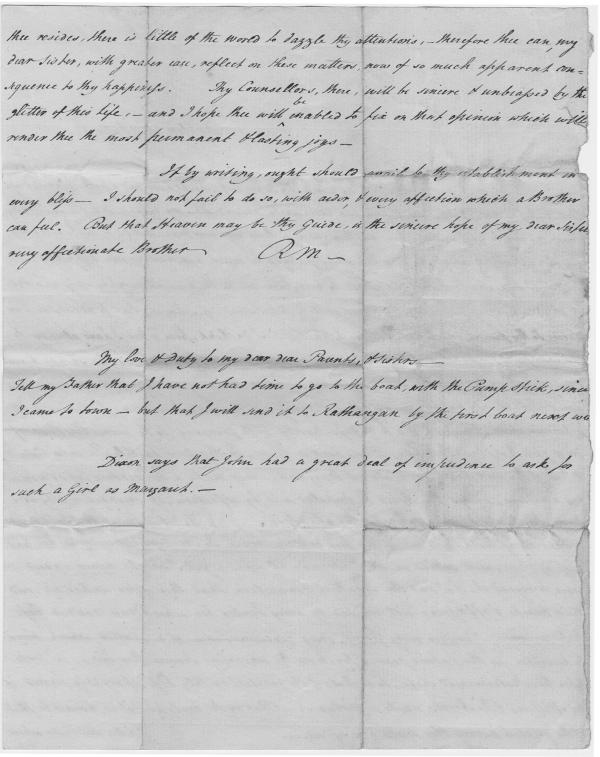 thee resides, there is little of the world to dazzle thy attentions, – therefore thee can, my
dear Sister, with greater ease, reflect on these matters, now of so much apparent con=
sequence to thy happiness. Thy Counsellors, there, will be sincere & unbiassed by the
glitter of this life, – and I hope thee will be enabled to fix on that opinion which will
render thee the most permanent & lasting joys –
If by writing, ought should avail to thy establishment in
every bliss – I should not fail to do so, with ardor, & every affection which a Brother
can feel. But that Heaven may be thy Guide, is the sincere hope of my dear Sister
very affectionate Brother R M –
My love & duty to my dear dear Parents, & Sisters –
Tell my Father that I have not had time to go to the boat with the Pump Stick, since
I came to town – but that I will send it to Rathangan by the first boat next we
Dixon says that John had a great deal of impudence to ask for
such a Girl as Margaret. –